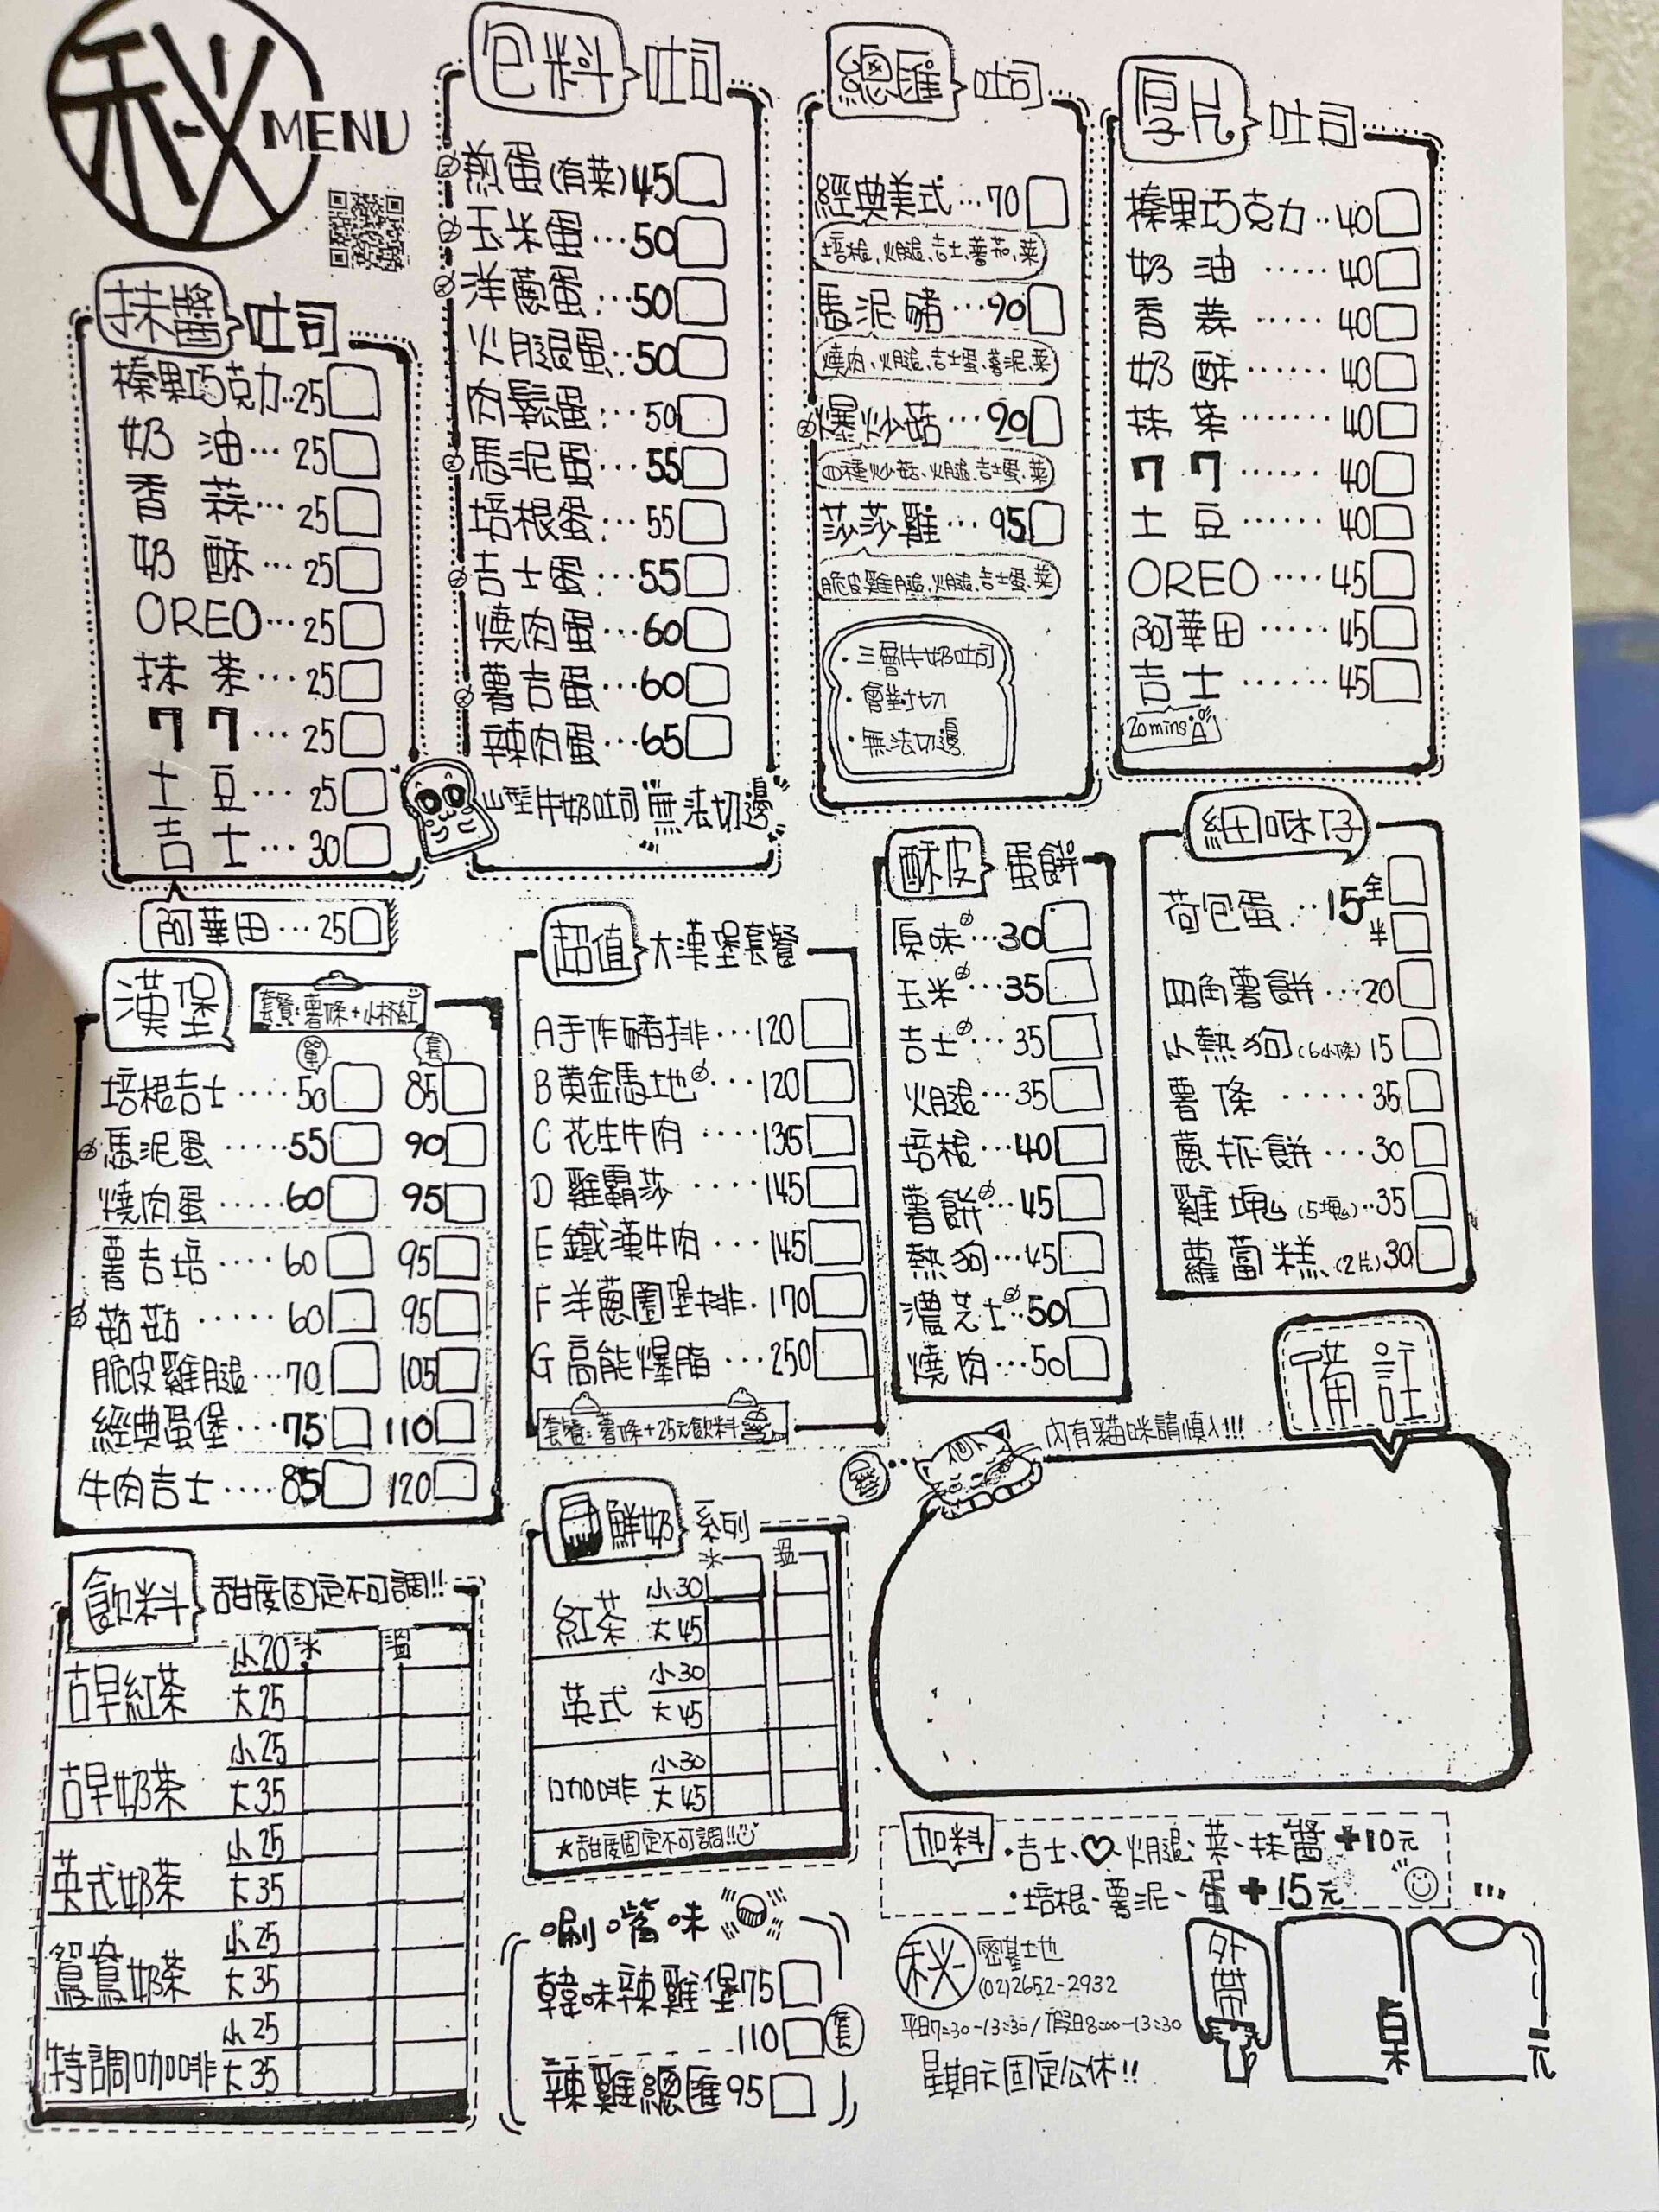 秘 MENU
抹醬 吐司
榛果巧克力..25
奶油...25
香蒜...25
奶酥...25
OREO...25
抹茶...25
77...25
土豆...25
吉士...30
阿華田...25
包料 吐司
煎蛋(有菜)45
玉米蛋...50
洋蔥蛋...50
火腿蛋...50
肉鬆蛋...50
馬泥蛋...55
培根蛋...55
吉士蛋...55
燒肉蛋...60
薯吉蛋...60
辣肉蛋...65
山型牛奶吐司"無法切邊"
總匯 吐司
經典美式...70
培根、火腿、吉士、蕃茄、菜
馬泥豬...90
燒肉、火腿、吉士蛋、薯泥、菜
爆炒菇...90
四種炒菇、火腿、吉士蛋、菜
莎莎雞...95
脆皮雞腿、火腿、吉士蛋、菜
·三層牛奶吐司
·會對切
·無法切邊
厚片 吐司
榛果巧克力..50
奶油.....50
香蒜.....50
奶酥.....50
抹茶.......50
77......50
土豆......50
OREO....45
阿華田.....45
吉士......45
20mins
漢堡 套餐:薯條+小杯紅
單 套
培根吉士....50 85
馬泥蛋.....55 90
燒肉蛋.....60 95
薯吉培....60 95
菇菇.....60 95
脆皮雞腿...70 105
經典蛋堡...75 110
牛肉吉士....85 120
超值 大漢堡套餐
A手作豬排...120
B黃金馬地...120
C花生牛肉....135
D雞霸莎....145
E鐵漢牛肉...145
F洋蔥圈堡排.170
G高能爆脂...250
套餐:薯條+25元飲料
酥皮 蛋餅
原味...30
玉米...35
吉士...35
火腿...35
培根...40
薯餅...45
熱狗...45
濃芝士..50
燒肉...50
細咪仔
荷包蛋..15 全
半
四角薯餅...20
小熱狗(6小條)15
薯條.....35
蔥抓餅...30
雞塊(5塊)..35
蘿蔔糕(2片)30
備註
內有貓咪請慎入!!!
飲料 甜度固定不可調!!
冰 溫
古早紅茶 小20
大25
古早奶茶 小25
大35
英式奶茶 小25
大35
鴛鴦奶茶 小25
大35
特調咖啡 小25
大35
鮮奶 系列
冰 溫
紅茶 小30
大45
英式 小30
大45
咖啡 小30
大45
★甜度固定不可調!!
唰嘴味
韓味辣雞堡75
110 套
辣雞總匯95
加料 ·吉士、♡、火腿、菜、抹醬+10元
·培根、薯泥、蛋+15元
秘密基地
(02)2652-2932
平日7:30-13:30/假日8:00-13:30
星期六固定公休!!
外帶
桌
元